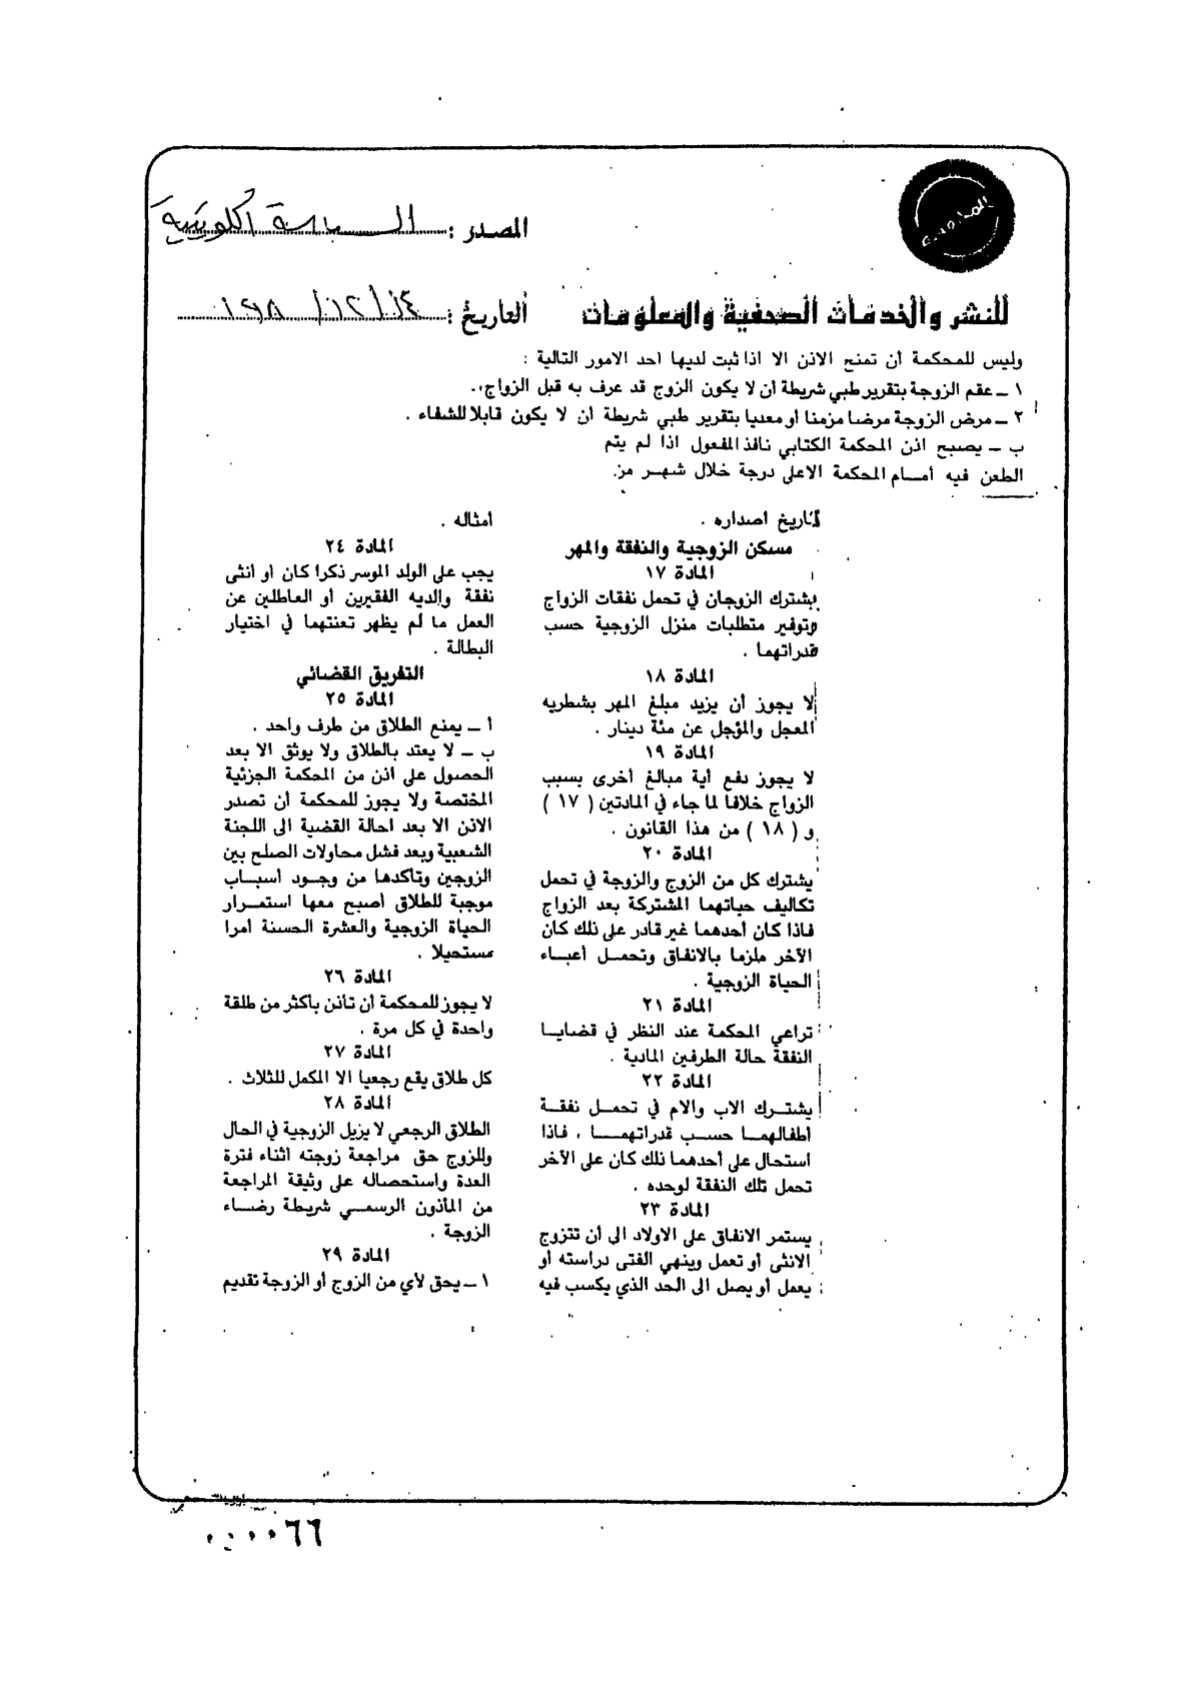 المصدر : السياسة الكويتية
للنشر والخدمات الصحفية والمعلومات
التاريخ :
وليس للمحكمة أن تمنح الاذن الا اذا ثبت لديها احد الامور التالية :
١ ــ عقم الزوجة بتقرير طبي شريطة أن لا يكون الزوج قد عرف به قبل الزواج .
٢ ــ مرض الزوجة مرضا مزمنا أو معديا بتقرير طبي شريطة أن لا يكون قابلا للشفاء .
ب ــ يصبح اذن المحكمة الكتابي نافذ المفعول اذا لم يتم
الطعن فيه أمام المحكمة الاعلى درجة خلال شهر من
تاريخ اصداره .
مسكن الزوجية والنفقة والمهر
المادة ١٧
يشترك الزوجان في تحمل نفقات الزواج
وتوفير متطلبات منزل الزوجية حسب
قدراتهما .
المادة ١٨
لا يجوز أن يزيد مبلغ المهر بشطريه
المعجل والمؤجل عن مئة دينار .
المادة ١٩
لا يجوز دفع أية مبالغ أخرى بسبب
الزواج خلافا لما جاء في المادتين ( ١٧ )
و ( ١٨ ) من هذا القانون .
المادة ٢٠
يشترك كل من الزوج والزوجة في تحمل
تكاليف حياتهما المشتركة بعد الزواج
فاذا كان أحدهما غير قادر على ذلك كان
الآخر ملزما بالانفاق وتحمل أعباء
الحياة الزوجية .
المادة ٢١
تراعي المحكمة عند النظر في قضايا
النفقة حالة الطرفين المادية .
المادة ٢٢
يشترك الاب والام في تحمل نفقة
أطفالهما حسب قدراتهما ، فاذا
استحال على أحدهما ذلك كان على الآخر
تحمل تلك النفقة لوحده .
المادة ٢٣
يستمر الانفاق على الاولاد الى أن تتزوج
الانثى أو تعمل وينهي الفتى دراسته أو
يعمل أو يصل الى الحد الذي يكسب فيه
أمثاله .
المادة ٢٤
يجب على الولد الموسر ذكرا كان أو انثى
نفقة والديه الفقيرين أو العاطلين عن
العمل ما لم يظهر تعنتهما في اختيار
البطالة .
التفريق القضائي
المادة ٢٥
أ ــ يمنع الطلاق من طرف واحد .
ب ــ لا يعتد بالطلاق ولا يوثق الا بعد
الحصول على اذن من المحكمة الجزئية
المختصة ولا يجوز للمحكمة أن تصدر
الاذن الا بعد احالة القضية الى اللجنة
الشعبية وبعد فشل محاولات الصلح بين
الزوجين وتأكدها من وجود أسباب
موجبة للطلاق أصبح معها استمرار
الحياة الزوجية والعشرة الحسنة أمرا
مستحيلا .
المادة ٢٦
لا يجوز للمحكمة أن تأذن بأكثر من طلقة
واحدة في كل مرة .
المادة ٢٧
كل طلاق يقع رجعيا الا المكمل للثلاث .
المادة ٢٨
الطلاق الرجعي لا يزيل الزوجية في الحال
وللزوج حق مراجعة زوجته اثناء فترة
العدة واستحصاله على وثيقة المراجعة
من المأذون الرسمي شريطة رضاء
الزوجة .
المادة ٢٩
١ ــ يحق لأي من الزوج أو الزوجة تقديم
٠٠٠٠٦٦